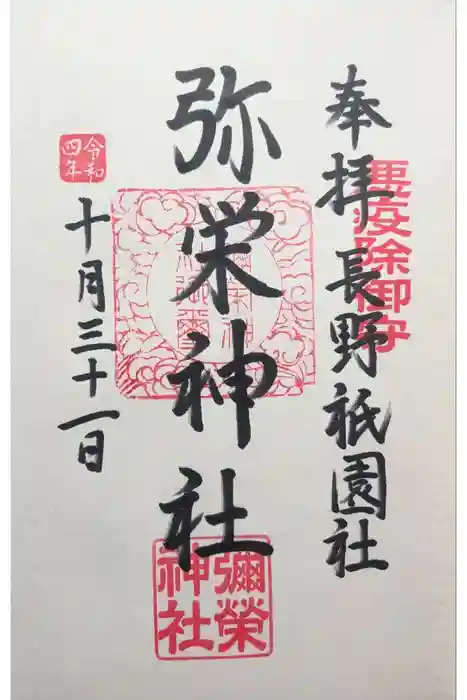 奉拝 長野祇園社
悪疫除御守
弥栄神社
彌榮神社
令和四年
十月三十一日